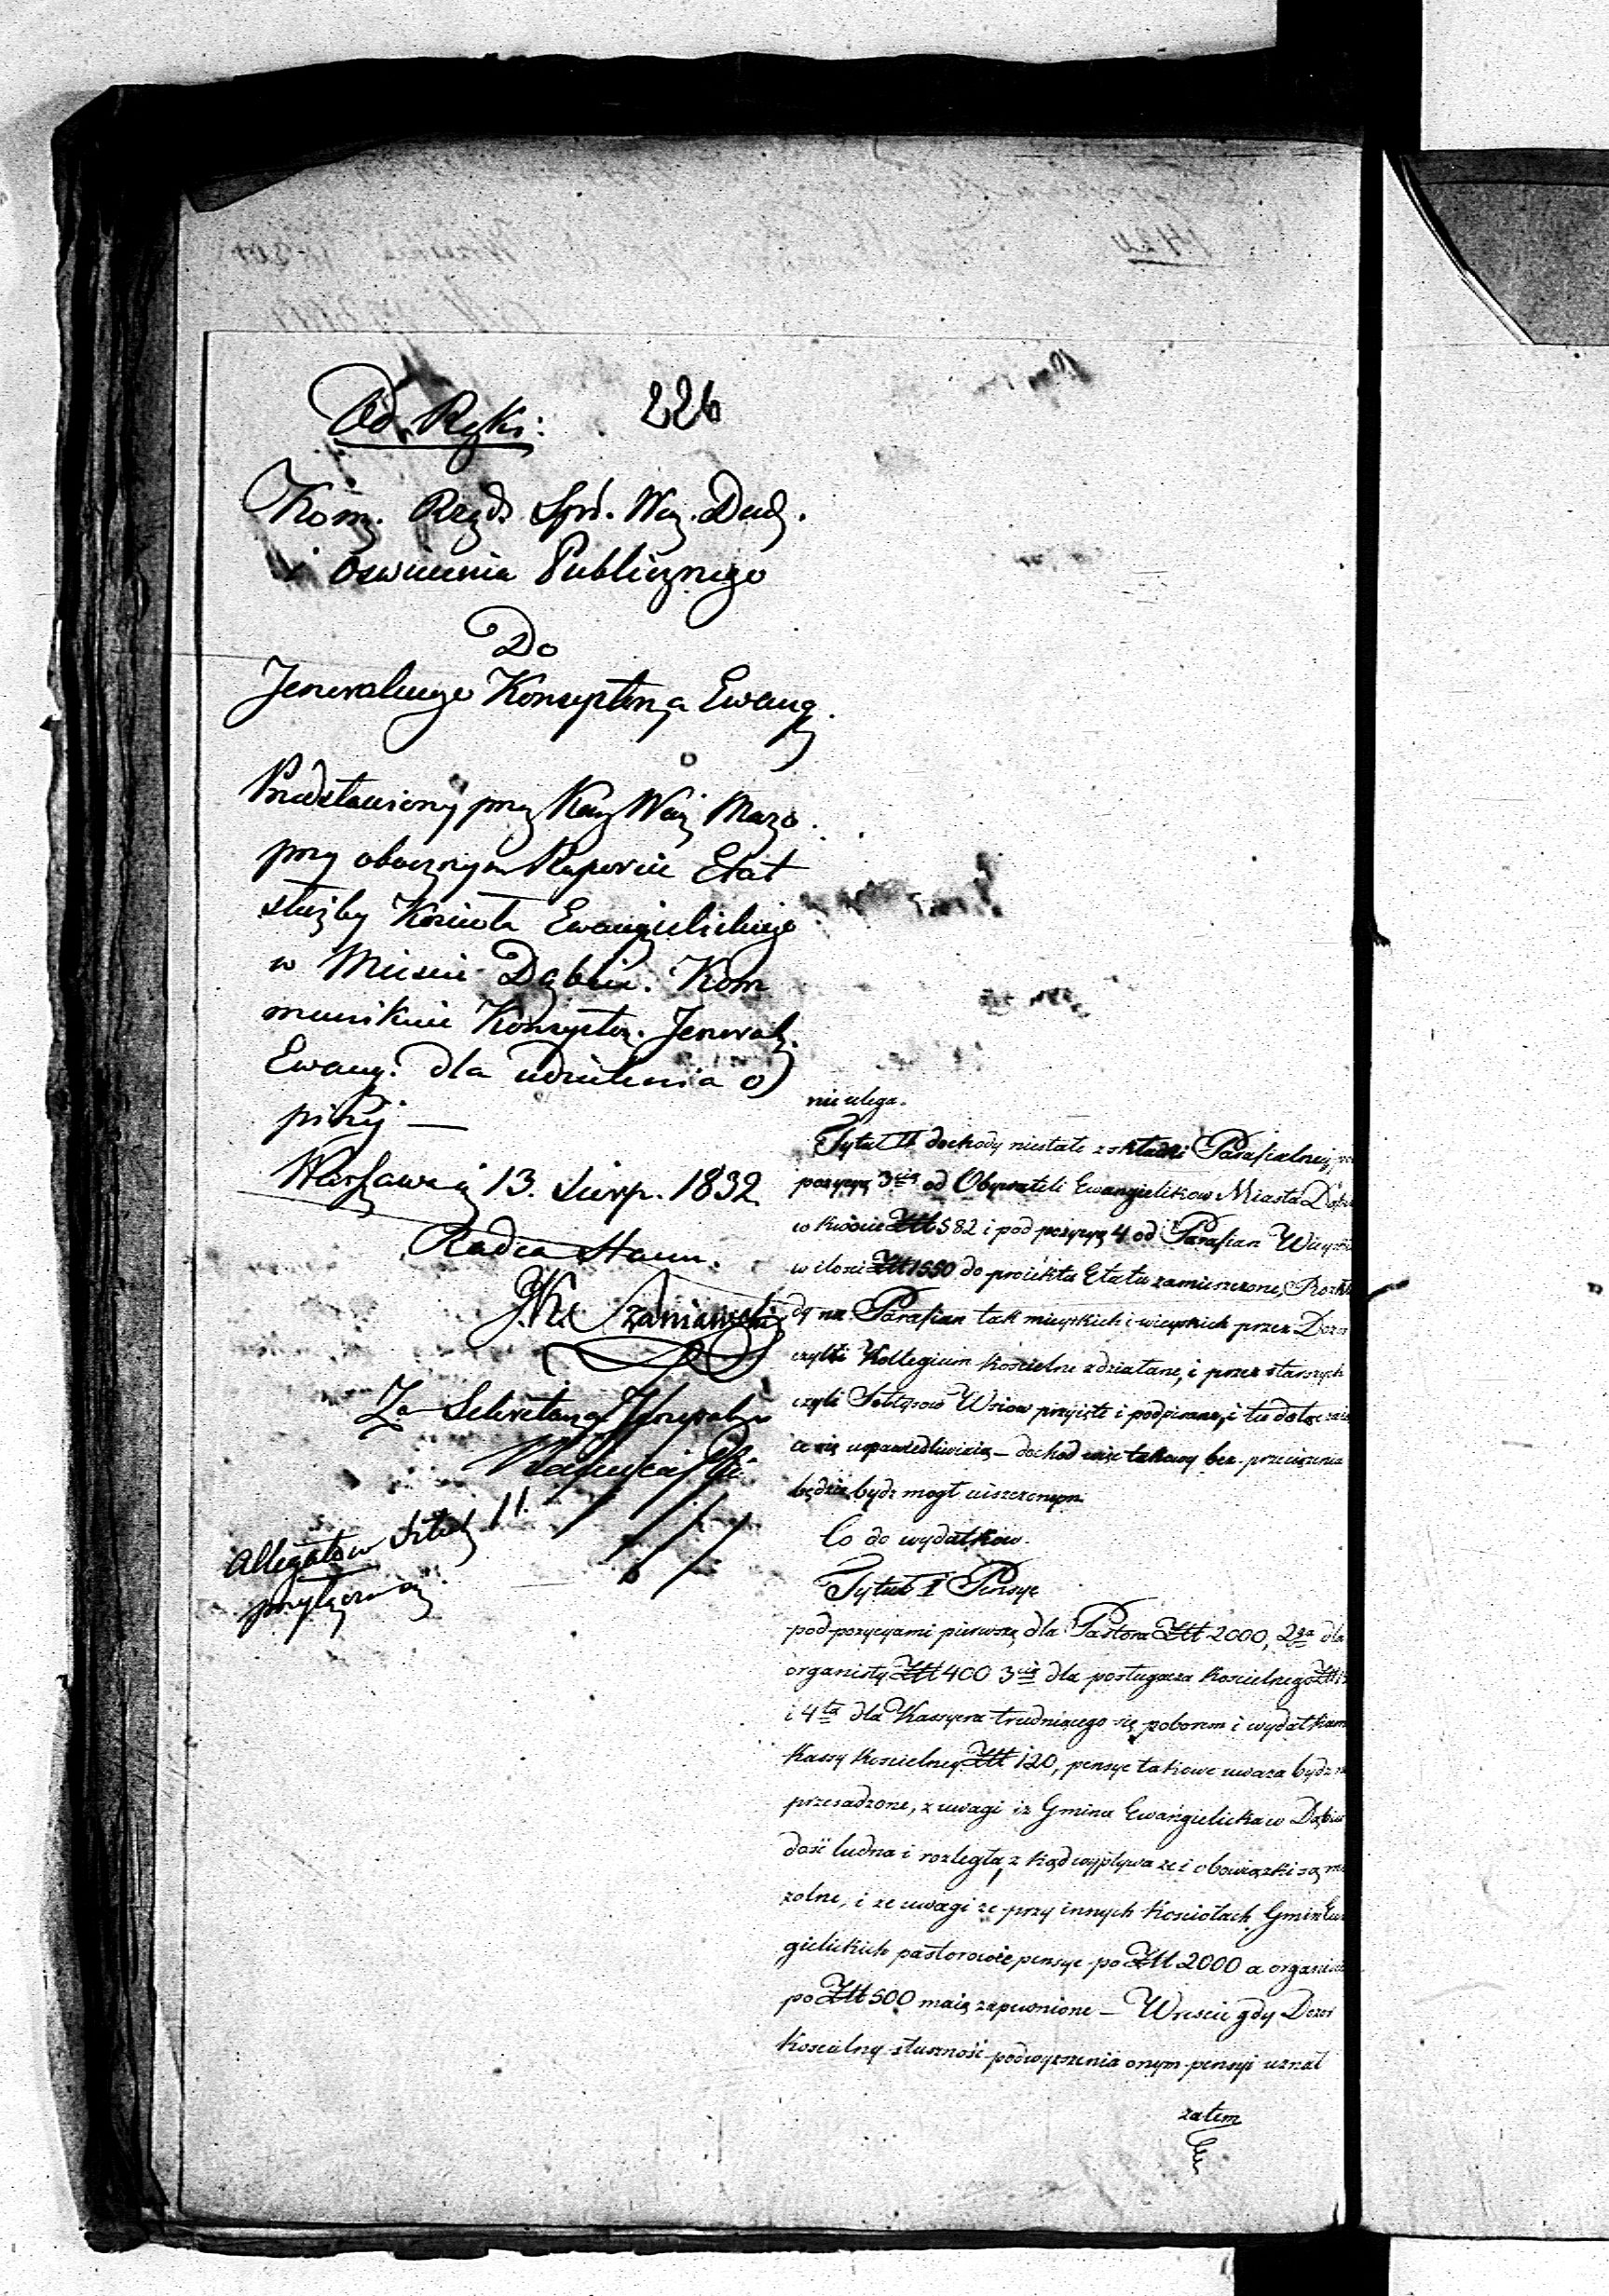 Ad Rzkr: 226
Kom. Rząd. Spr. We. Duch.
i Oswiecenia Publicznego
Do
Jeneralnego Konsystorza Ewang.
Przedstawiony przez Kom Woj. Mazo.
przy obocznym Raporcie Etat
służby Kosciola Ewangelickiego
w Miescie Dąbiu. Kom
munikuie Konsystor. Jeneral.
Ewang. dla udzielenia o
pinij —
Warszawa 13. Sierp. 1832
Radca Stanu.
JK. Szaniawski
Za Sekretarza Jeneraln
Allegatow sztuk 11.
przyłącza
nie ulega.
Tytuł II dochody niestałe z składki Parafialney
pozycyą 3cią od Obywateli Ewangielikow Miasta
w kwocie Złł 582 i pod pozycyą 4 od Parafian
w ilosci Złł 1550 do proiektu Etatu zamieszczone,
dy na Parafian tak mieyskich i wieyskich przez
czyli Kollegium kościelne zdziałane, i przez starszych
czyli Sołtysow Wsiow przyięte i podpisane, i tu
ce się usprawiedliwiaią — dochod więc takowy bez przeciążenia
będzie bydz mogł uiszczonym.
Co do wydatkow.
Tytuł I Pensye
pod pozycyami pierwszą dla Pastora Złł 2000, 2gą dla
organisty Złł 400 3cią dla posługacza kościelnego Złł
i 4tą dla Kassyera trudniącego się poborem i wydatkam
Kassy kościelney Złł 120, pensye takowe uważa bydz
przesadzone, z uwagi iż Gmina Ewangielicka w Dąbiu
dość ludna i rozległa, z kąd wypływa że i obowiązki są mo
zolne, i ze uwagi że przy innych kościołach Gmin Ewa
gielickich pastorowie pensye po Złł 2000 a organi
po Złł 500 maią zapewnione — Wreście gdy Dozor
kościelny słuszność podwyższenia onym pensyi uznał
zatem